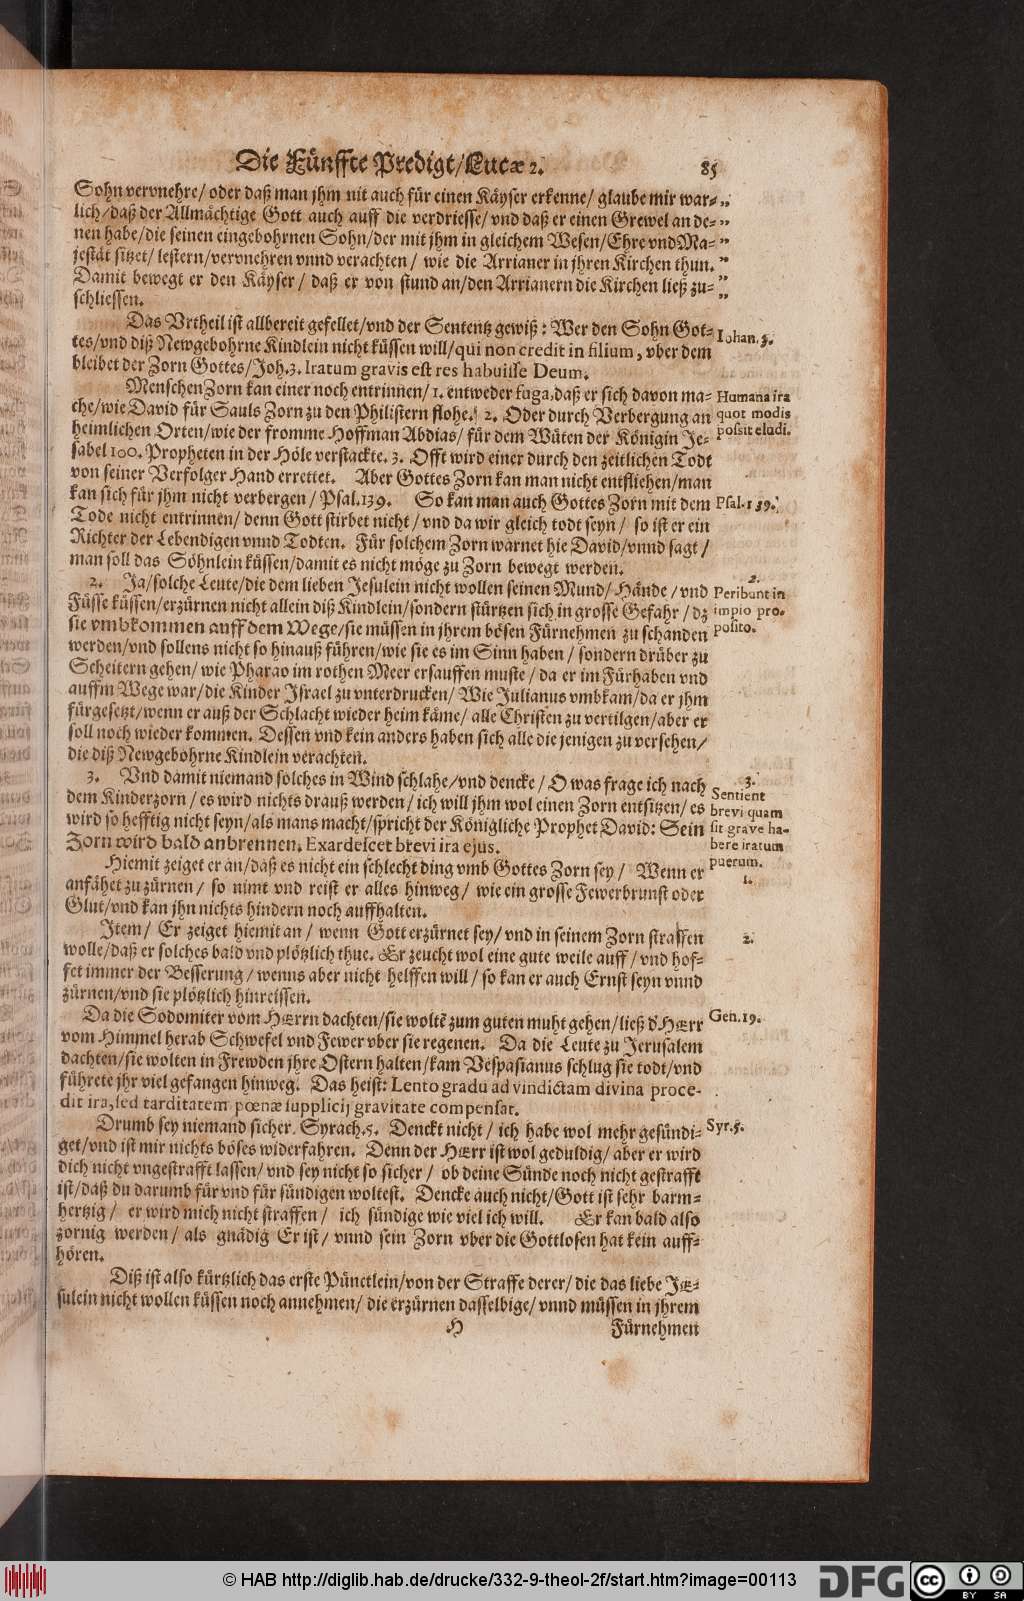 Die Fünffte Predigt/Lucæ 2. 85
Sohn vervnehre/ oder daß man jhm nit auch für einen Käyser erkenne/ glaube mir war- „
lich/daß der Allmächtige Gott auch auff die verdriesse/ vnd daß er einen Grewel an de- „
nen habe/die seinen eingebohrnen Sohn/der mit jhm in gleichem Wesen/Ehre vnd Ma- „
jestät sitzet/ lestern/vervnehren vnnd verachten/ wie die Arrianer in jhren Kirchen thun. „
Damit bewegt er den Käyser/ daß er von stund an/den Arrianern die Kirchen ließ zu- „
schliessen. „
Das Vrtheil ist allbereit gefellet/vnd der Sententz gewiß: Wer den Sohn Got-
Iohan. 3.
tes/vnd diß Newgebohrne Kindlein nicht küssen will/qui non credit in filium, vber dem
bleibet der Zorn Gottes/Joh.3. Iratum gravis est res habuisse Deum.
Menschen Zorn kan einer noch entrinnen/ 1. entweder fuga, daß er sich davon ma-
Humana ira
che/wie David für Sauls Zorn zu den Philistern flohe. 2. Oder durch Verbergung an
quot modis
heimlichen Orten/wie der fromme Hoffman Abdias/ für dem Wüten der Königin Je-
possit eludi.
sabel 100. Propheten in der Höle verstackte. 3. Offt wird einer durch den zeitlichen Todt
von seiner Verfolger Hand errettet. Aber Gottes Zorn kan man nicht entfliehen/man
kan sich für jhm nicht verbergen/ Psal.139. So kan man auch Gottes Zorn mit dem
Psal. 139.
Tode nicht entrinnen/ denn Gott stirbet nicht/ vnd da wir gleich todt seyn/ so ist er ein
Richter der Lebendigen vnnd Todten. Für solchem Zorn warnet hie David/vnnd sagt/
man soll das Söhnlein küssen/damit es nicht möge zu Zorn bewegt werden.
2. Ja/solche Leute/die dem lieben Jesulein nicht wollen seinen Mund/ Hände/ vnd
2.
Peribunt in
Füsse küssen/erzürnen nicht allein diß Kindlein/sondern stürtzen sich in grosse Gefahr/ dz
impio pro-
sie vmbkommen auff dem Wege/sie müssen in jhrem bösen Fürnehmen zu schanden
posito.
werden/vnd sollens nicht so hinauß führen/wie sie es im Sinn haben/ sondern drüber zu
Scheitern gehen/ wie Pharao im rothen Meer ersauffen muste/ da er im Fürhaben vnd
auffm Wege war/die Kinder Israel zu vnterdrucken/ Wie Iulianus vmbkam/da er jhm
fürgesetzt/wenn er auß der Schlacht wieder heim käme/ alle Christen zu vertilgen/aber er
soll noch wieder kommen. Dessen vnd kein anders haben sich alle die jenigen zu versehen/
die diß Newgebohrne Kindlein verachten.
3. Vnd damit niemand solches in Wind schlahe/vnd dencke/ O was frage ich nach
3.
Sentient
dem Kinderzorn/ es wird nichts drauß werden/ ich will jhm wol einen Zorn entsitzen/ es
brevi quam
wird so hefftig nicht seyn/als mans macht/spricht der Königliche Prophet David: Sein
sit grave ha-
Zorn wird bald anbrennen. Exardescet brevi ira ejus.
bere iratum
puerum.
Hiemit zeiget er an/daß es nicht ein schlecht ding vmb Gottes Zorn sey/ Wenn er
1.
anfähet zu zürnen/ so nimt vnd reist er alles hinweg/ wie ein grosse Fewerbrunst oder
Glut/vnd kan jhn nichts hindern noch auffhalten.
Item/ Er zeiget hiemit an/ wenn Gott erzürnet sey/ vnd in seinem Zorn straffen
2.
wolle/daß er solches bald vnd plötzlich thue. Er zeucht wol eine gute weile auff/ vnd hof-
fet immer der Besserung/ wenns aber nicht helffen will/ so kan er auch Ernst seyn vnnd
zürnen/vnd sie plötzlich hinreissen.
Da die Sodomiter vom HErrn dachten/sie woltē zum guten muht gehen/ließ d' HErr
Gen. 19.
vom Himmel herab Schwefel vnd Fewer vber sie regenen. Da die Leute zu Jerusalem
dachten/sie wolten in Frewden jhre Ostern halten/kam Vespasianus schlug sie todt/vnd
führete jhr viel gefangen hinweg. Das heist: Lento gradu ad vindictam divina proce-
dit ira, sed tarditatem pœnæ supplicij gravitate compensat.
Drumb sey niemand sicher. Syrach.5. Denckt nicht/ ich habe wol mehr gesündi-
Syr.5.
get/vnd ist mir nichts böses widerfahren. Denn der HErr ist wol geduldig/ aber er wird
dich nicht vngestrafft lassen/ vnd sey nicht so sicher/ ob deine Sünde noch nicht gestrafft
ist/daß du darumb für vnd für sündigen woltest. Dencke auch nicht/Gott ist sehr barm-
hertzig/ er wird mich nicht straffen/ ich sündige wie viel ich will. Er kan bald also
zornig werden/ als gnädig Er ist/ vnnd sein Zorn vber die Gottlosen hat kein auff-
hören.
Diß ist also kürtzlich das erste Pünctlein/von der Straffe derer/ die das liebe JE-
sulein nicht wollen küssen noch annehmen/ die erzürnen dasselbige/ vnnd müssen in jhrem
H Fürnehmen
© HAB http://diglib.hab.de/drucke/332-9-theol-2f/start.htm?image=00113
DFG
cc BY SA